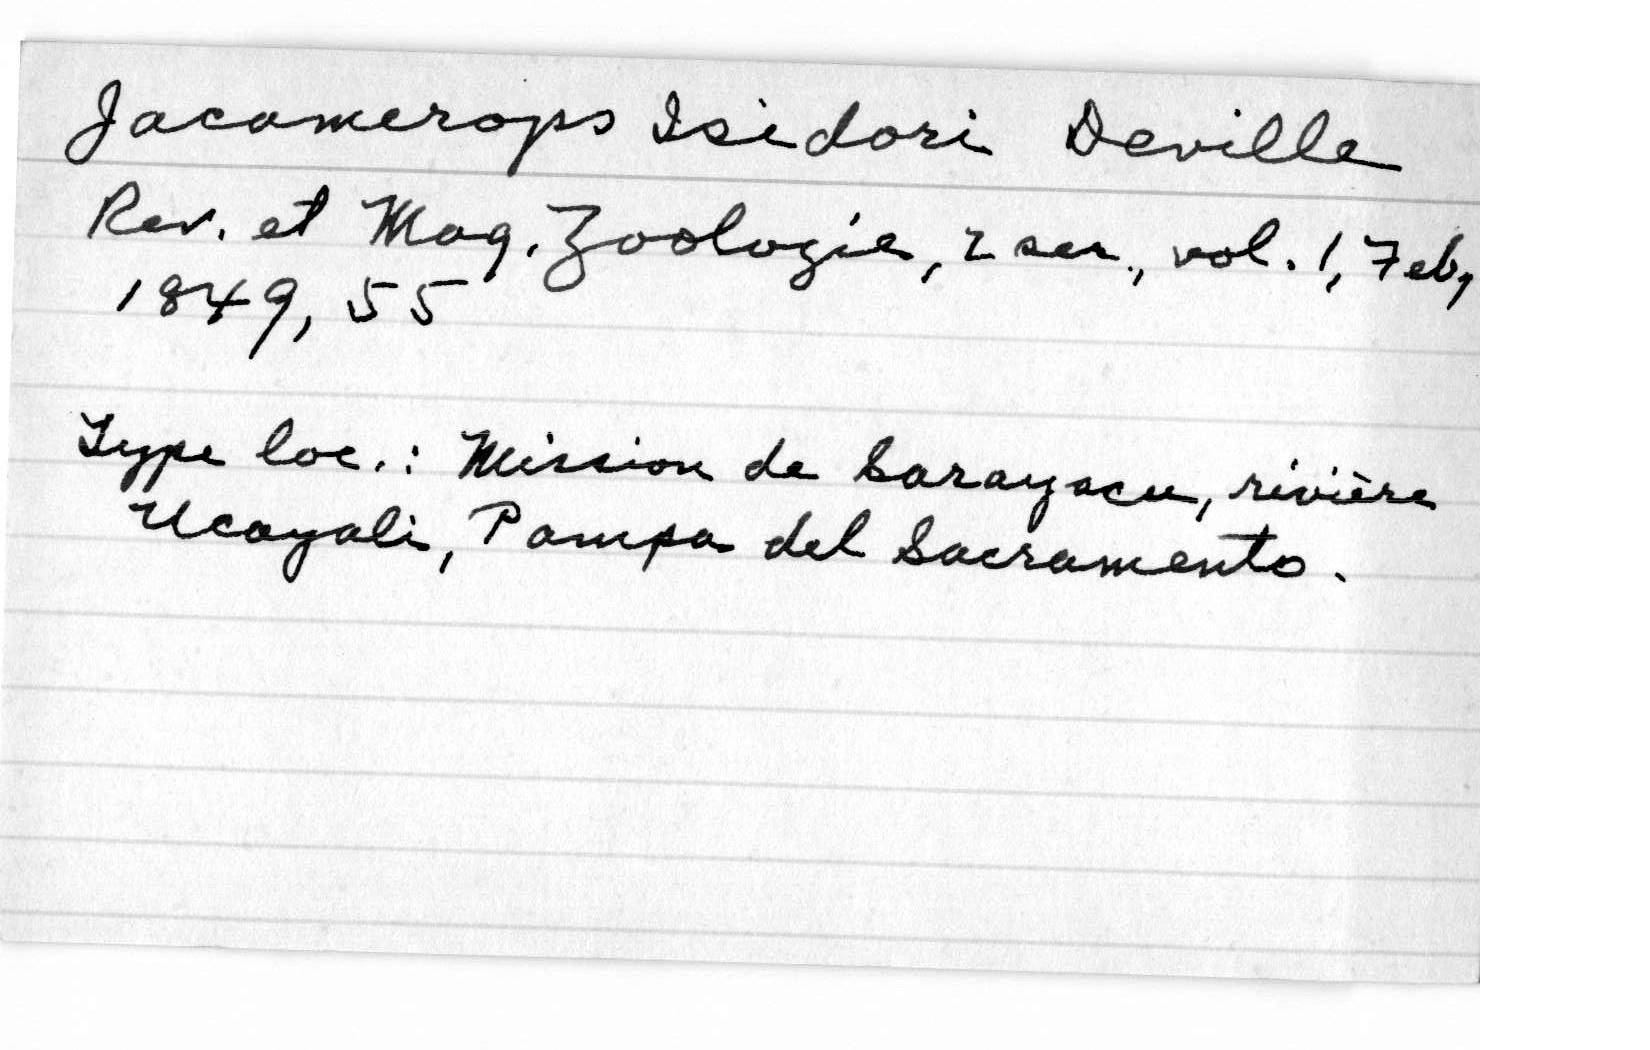 Jacamerops Isidori Deville
Rev. et Mag. Zoologie, 2 ser., vol. 1, Feb,
1849, 55
Type loc.: Mission de Sarayacu, rivière
Ucayali, Pampa del Sacramento.